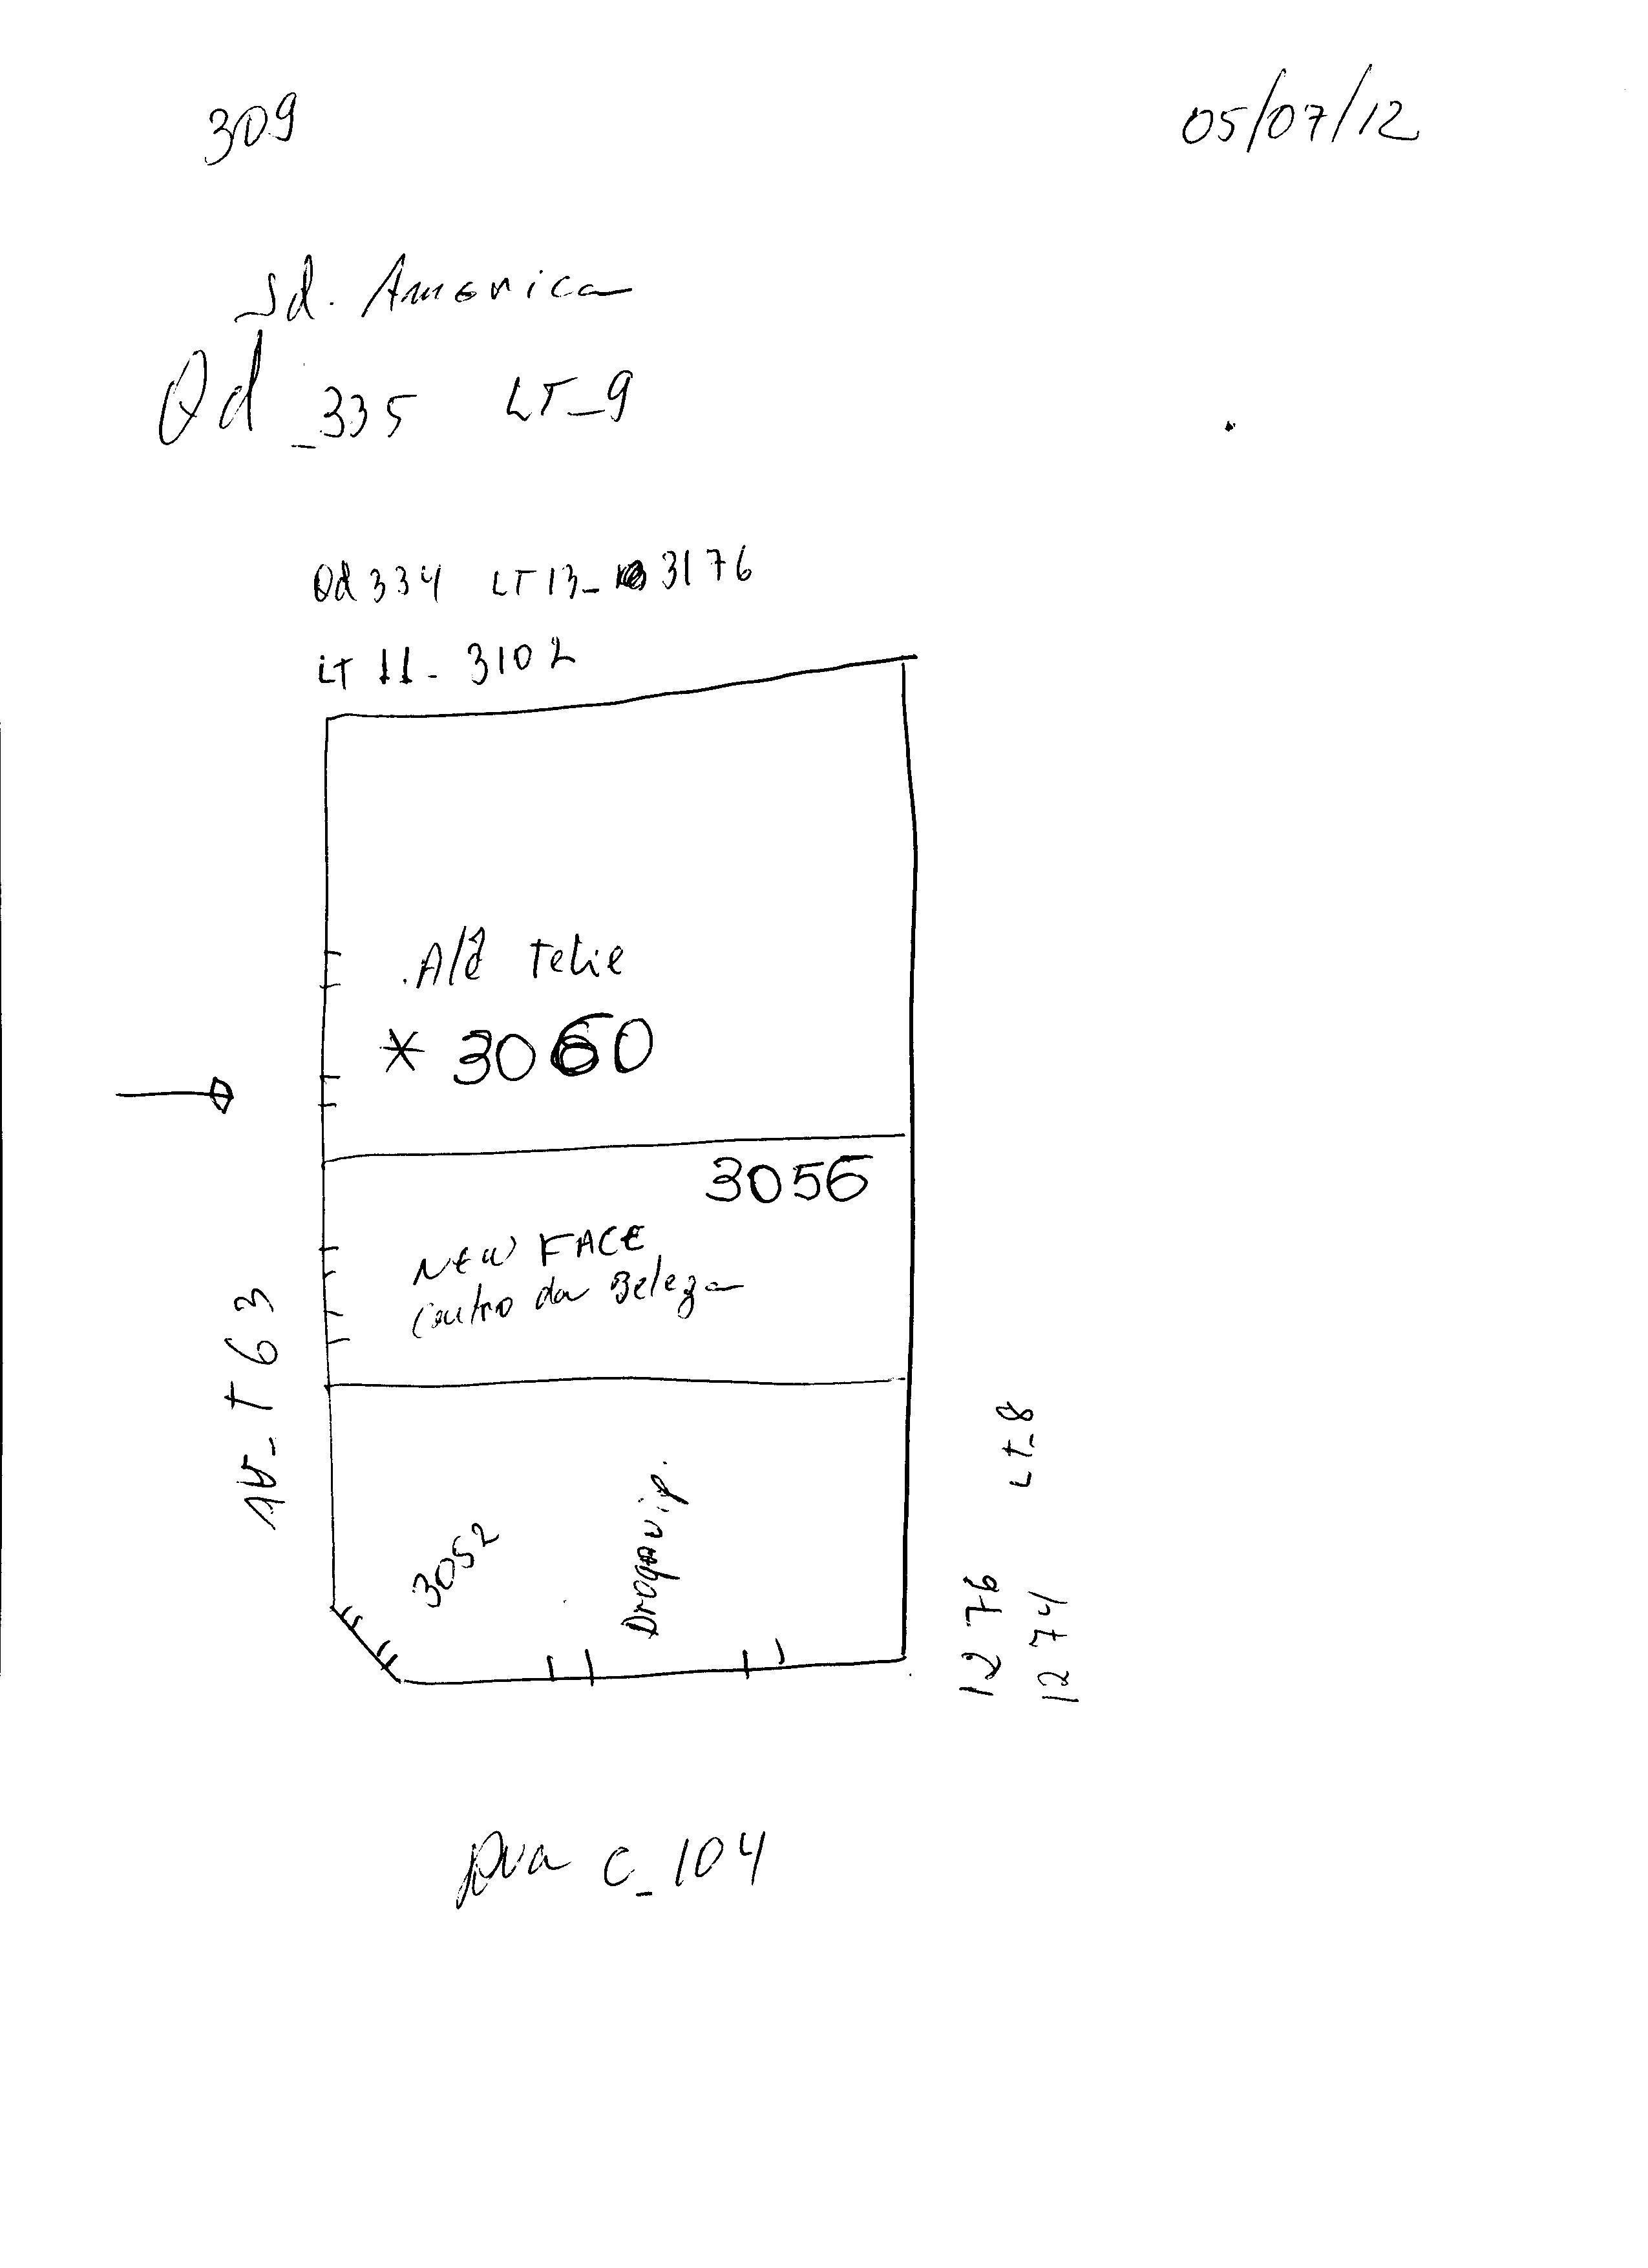 309
05/07/12
Jd. America
Qd _335 LT_9
Qd 334 LT 13_ 3176
LT 11_ 3102
* 3060
3056
NEW FACE
Centro da Beleza
AV_T 63
3052
LT_8
1276
1274
Rua C_104